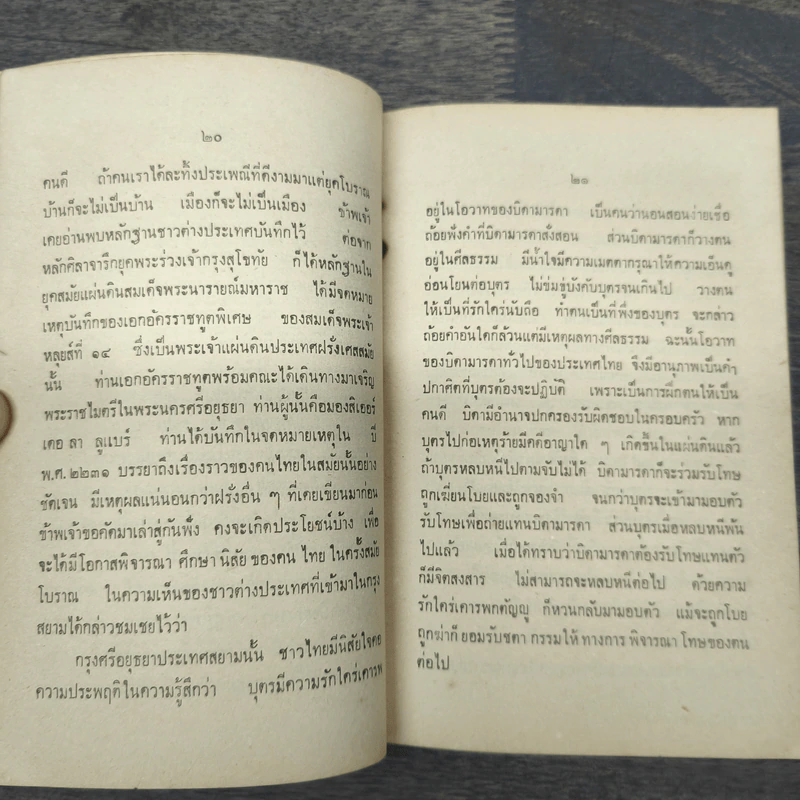 ๒๐
คนดี ถ้าคนเราได้ละทิ้งประเพณีที่ดีงามมาแต่ยุคโบราณ
บ้านก็จะไม่เป็นบ้าน เมืองก็จะไม่เป็นเมือง ข้าพเจ้า
เคยอ่านพบหลักฐานชาวต่างประเทศบันทึกไว้ ต่อจาก
หลักศิลาจารึกยุคพระร่วงเจ้ากรุงสุโขทัย ก็ได้หลักฐานใน
ยุคสมัยแผ่นดินสมเด็จพระนารายณ์มหาราช ได้มีจดหมาย
เหตุบันทึกของเอกอัครราชทูตพิเศษ ของสมเด็จพระเจ้า
หลุยส์ที่ ๑๔ ซึ่งเป็นพระเจ้าแผ่นดินประเทศฝรั่งเศสสมัย
นั้น ท่านเอกอัครราชทูตพร้อมคณะได้เดินทางมาเจริญ
พระราชไมตรีในพระนครศรีอยุธยา ท่านผู้นั้นคือมองสิเออร์
เดอ ลา ลูแบร์ ท่านได้บันทึกในจดหมายเหตุใน ปี
พ.ศ. ๒๒๓๑ บรรยาถึงเรื่องราวของคนไทยในสมัยนั้นอย่าง
ชัดเจน มีเหตุผลแน่นอนกว่าฝรั่งอื่น ๆ ที่เคยเขียนมาก่อน
ข้าพเจ้าขอคัดมาเล่าสู่กันฟัง คงจะเกิดประโยชน์บ้าง เพื่อ
จะได้มีโอกาสพิจารณา ศึกษา นิสัย ของคน ไทย ในครั้งสมัย
โบราณ ในความเห็นของชาวต่างประเทศที่เข้ามาในกรุง
สยามได้กล่าวชมเชยไว้ว่า
กรุงศรีอยุธยาประเทศสยามนั้น ชาวไทยมีนิสัยใจคอ
ความประพฤติในความรู้สึกว่า บุตรมีความรักใคร่เคารพ
๒๑
อยู่ในโอวาทของบิดามารดา เป็นคนว่านอนสอนง่ายเชื่อ
ถ้อยฟังคำที่บิดามารดาสั่งสอน ส่วนบิดามารดาก็วางตน
อยู่ในศีลธรรม มีน้ำใจมีความเมตตากรุณาให้ความเอ็นดู
อ่อนโยนต่อบุตร ไม่ข่มขู่บังคับบุตรจนเกินไป วางตน
ให้เป็นที่รักใคร่นับถือ ทำตนเป็นที่พึ่งของบุตร จะกล่าว
ถ้อยคำอันใดก็ล้วนแต่มีเหตุผลทางศีลธรรม ฉะนั้นโอวาท
ของบิดามารดาทั่วไปของประเทศไทย จึงมีอานุภาพเป็นคำ
ปกาศิตที่บุตรต้องจะปฏิบัติ เพราะเป็นการฝึกตนให้เป็น
คนดี บิดามีอำนาจปกครองรับผิดชอบในครอบครัว หาก
บุตรไปก่อเหตุร้ายมีคดีอาญาใด ๆ เกิดขึ้นในแผ่นดินแล้ว
ถ้าบุตรหลบหนีไปตามจับไม่ได้ บิดามารดาก็จะร่วมรับโทษ
ถูกเฆี่ยนโบยและถูกจองจำ จนกว่าบุตรจะเข้ามามอบตัว
รับโทษเพื่อถ่ายแทนบิดามารดา ส่วนบุตรเมื่อหลบหนีพ้น
ไปแล้ว เมื่อได้ทราบว่าบิดามารดาต้องรับโทษแทนตัว
ก็มีจิตสงสาร ไม่สามารถจะหลบหนีต่อไป ด้วยความ
รักใคร่เคารพกตัญญู ก็หวนกลับมามอบตัว แม้จะถูกโบย
ถูกฆ่าก็ ยอมรับชตา กรรมให้ ทางการ พิจารณา โทษของตน
ต่อไป